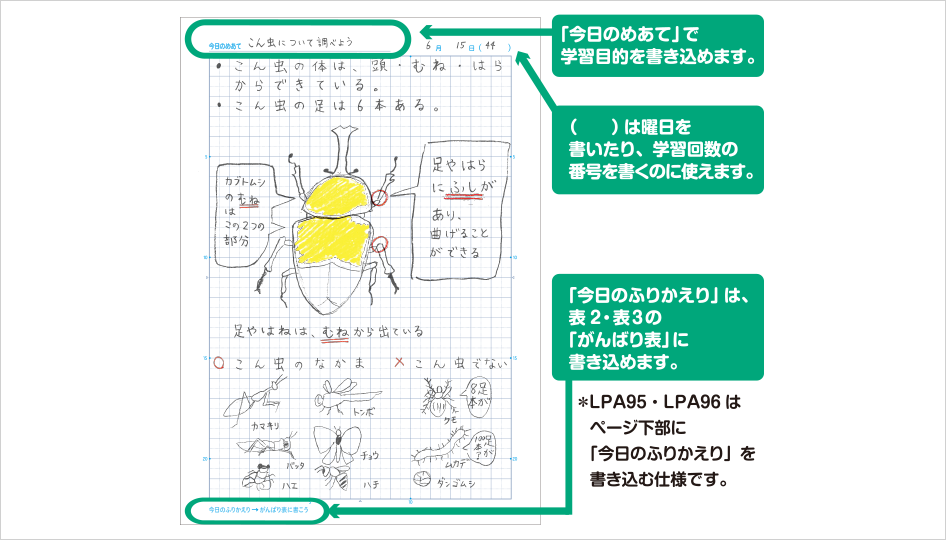 今日のめあて こん虫について調べよう
6月 15日(44 )
「今日のめあて」で
学習目的を書き込めます。
・こん虫の体は、頭・むね・はら
からできている。
・こん虫の足は6本ある。
( )は曜日を
書いたり、学習回数の
番号を書くのに使えます。
カブトムシ
のむね
は
この2つの
部分
足やはら
にふしが
あり、
曲げること
ができる
足やはねは、むねから出ている
○こん虫のなかま
×こん虫でない
カマキリ
トンボ
バッタ
チョウ
ハエ
ハチ
足が
8本
クモ
足が
100本?
ムカデ
ダンゴムシ
5
10
15
20
5
10
15
20
10
今日のふりかえり→がんばり表に書こう
「今日のふりかえり」は、
表2・表3の
「がんばり表」に
書き込めます。
*LPA95・LPA96は
ページ下部に
「今日のふりかえり」を
書き込む仕様です。